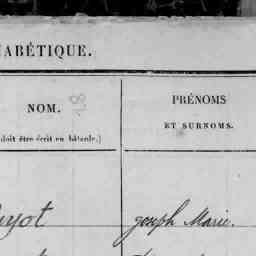 HABÉTIQUE.
NOM. 18
doit être écrit en bâtarde.)
PRÉNOMS
ET SURNOMS.
uyot
Joseph Marie.